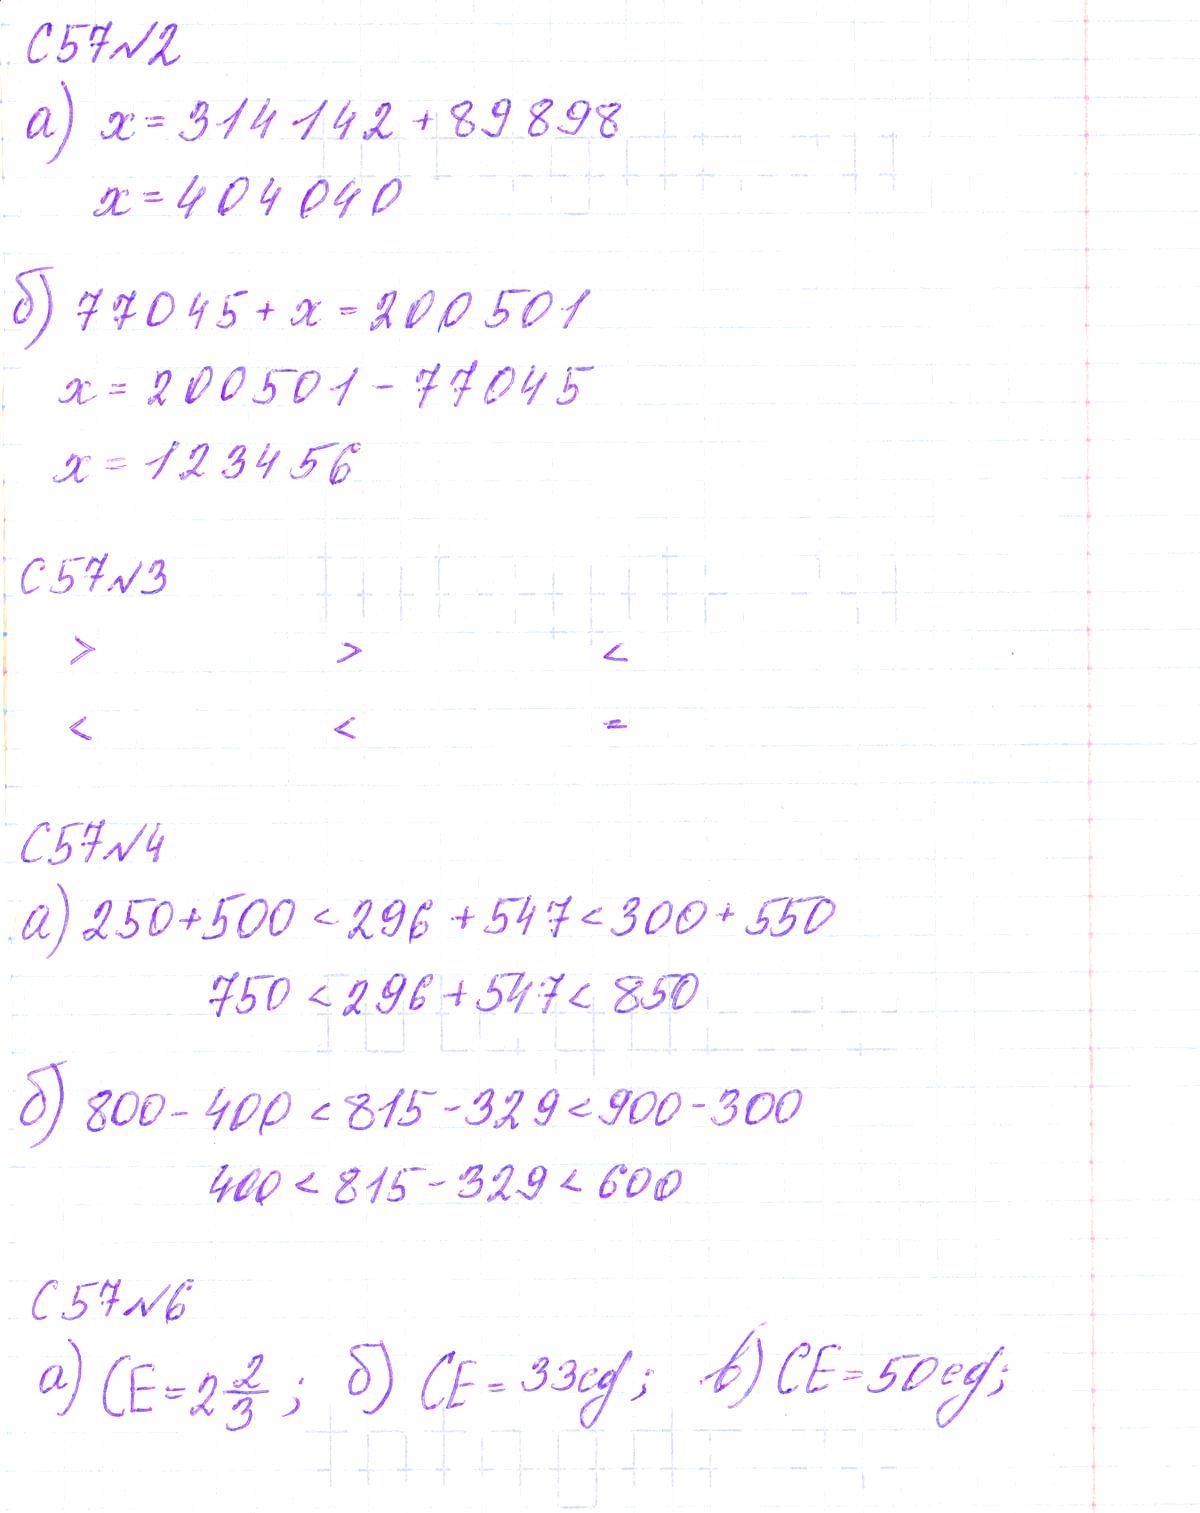 С57№2
а) x=314142+89898
x=404040
б) 77045+x=200501
x=200501-77045
x=123456
С57№3
> > <
< < =
С57№4
а) 250+500<296+547<300+550
750<296+547<850
б) 800-400<815-329<900-300
400<815-329<600
С57№6
а) CE=2 2/3; б) CE=33ед; в) CE=50ед;